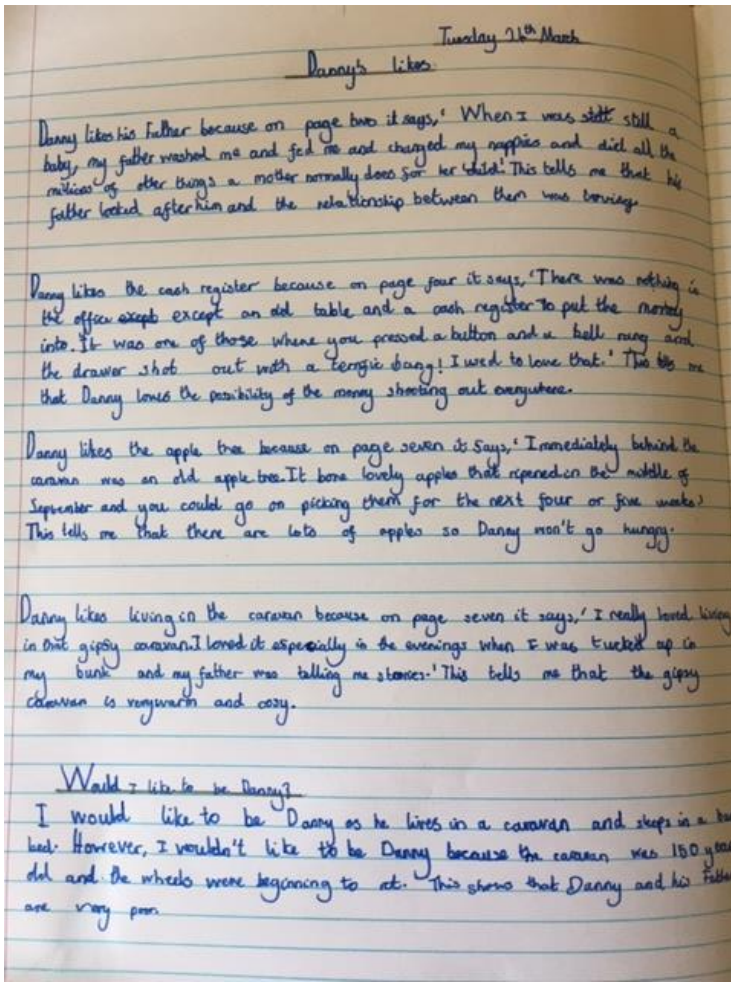 Tuesday 26th March
Danny's likes
Danny likes his Father because on page two it says,' When I was stott still a
baby, my father washed me and fed me and changed my nappies and did all the
millions of other things a mother normally does for her child.' This tells me that his
father looked after him and the relationship between them was loving.
Danny likes the cash register because on page four it says, 'There was nothing in
the office exept except an old table and a cash register to put the money
into. It was one of those where you pressed a button and a bell rang and
the drawer shot out with a terrific bang! I used to love that.' This tells me
that Danny loves the possibility of the money shooting out everywhere.
Danny likes the apple tree because on page seven it says, 'Immediately behind the
caravan was an old apple tree. It bore lovely apples that ripened in the middle of
September and you could go on picking them for the next four or five weeks.'
This tells me that there are lots of apples so Danny won't go hungry.
Danny likes living in the caravan because on page seven it says,' I really loved living
in that gipsy caravan. I loved it especially in the evenings when I was tucked up in
my bunk and my father was telling me stories.' This tells me that the gipsy
caravan is very warm and cosy.
Would I like to be Danny?
I would like to be Danny as he lives in a caravan and sleeps in a
bed. However, I wouldn't like to be Danny because the caravan was 150 year
old and the wheels were beginning to rot. This shows that Danny and his Father
are very poor.